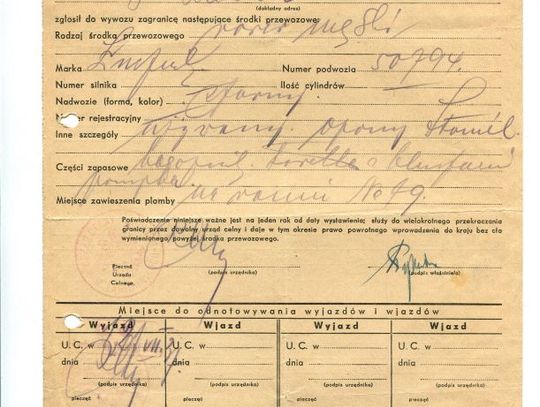 (dokładny adres)
zgłosił do wywozu zagranicę następujące środki przewozowe:
Rodzaj środka przewozowego rower męski
Marka Numer podwozia 50794.
Numer silnika Ilość cylindrów
Nadwozie (forma, kolor) czarny.
Numer rejestracyjny
Inne szczegóły używany. opony Stomil.
Części zapasowe torebka z kluczami
pompka
Miejsce zawieszenia plomby na ramie No 49.
Poświadczenie niniejsze ważne jest na jeden rok od daty wystawienia; służy do wielokrotnego przekraczania
granicy przez dowolny urząd celny i daje w tym okresie prawo powrotnego wprowadzenia do kraju bez cła
wymienionego, powyżej środka przewozowego.
Pieczęć
Urzędu
Celnego.
(podpis urzędnika)
(podpis właściciela)
Miejsce do odnotowywania wyjazdów i wjazdów
Wyjazd Wjazd Wyjazd Wjazd
U. C. w U. C. w U. C. w U. C. w
dnia dnia dnia dnia
(podpis urzędnika) (podpis urzędnika) (podpis urzędnika) (podpis urzędnika)
pieczęć pieczęć pieczęć pieczęć